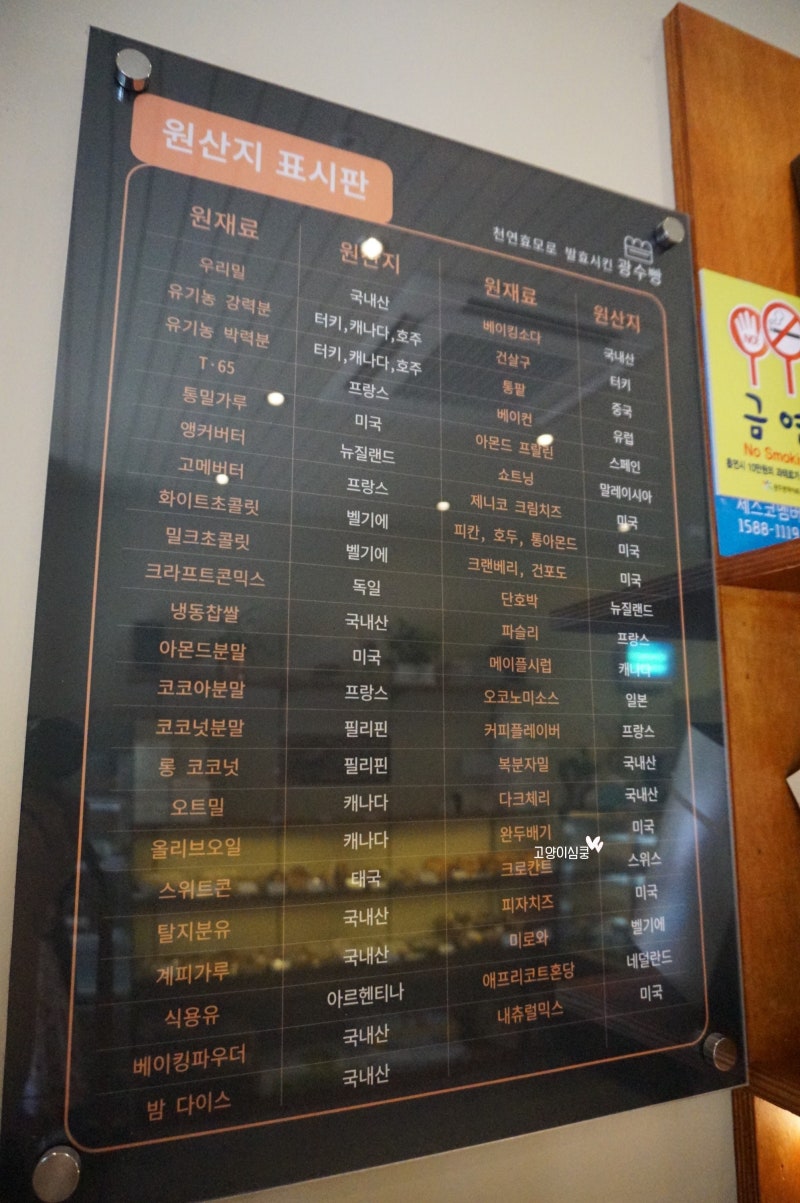 원산지 표시판
천연효모로 발효시킨 광수빵
원재료 원산지
우리밀 국내산
유기농 강력분 터키,캐나다,호주
유기농 박력분 터키,캐나다,호주
T·65 프랑스
통밀가루 미국
앵커버터 뉴질랜드
고메버터 프랑스
화이트초콜릿 벨기에
밀크초콜릿 벨기에
크라프트콘믹스 독일
냉동찹쌀 국내산
아몬드분말 미국
코코아분말 프랑스
코코넛분말 필리핀
롱 코코넛 필리핀
오트밀 캐나다
올리브오일 캐나다
스위트콘 태국
탈지분유 국내산
계피가루 국내산
식용유 아르헨티나
베이킹파우더 국내산
밤 다이스 국내산
원재료 원산지
베이킹소다 국내산
건살구 터키
통팥 중국
베이컨 유럽
아몬드 프랄린 스페인
쇼트닝 말레이시아
제니코 크림치즈 미국
피칸, 호두, 통아몬드 미국
크랜베리, 건포도 미국
단호박 뉴질랜드
파슬리 프랑스
메이플시럽 캐나다
오코노미소스 일본
커피플레이버 프랑스
복분자밀 국내산
다크체리 국내산
완두배기 미국
크로칸트 스위스
피자치즈 미국
미로와 벨기에
애프리코트혼당 네덜란드
내츄럴믹스 미국
고양이심쿵
NO!
금연
No Smoki
세스코멤버
1588-1119